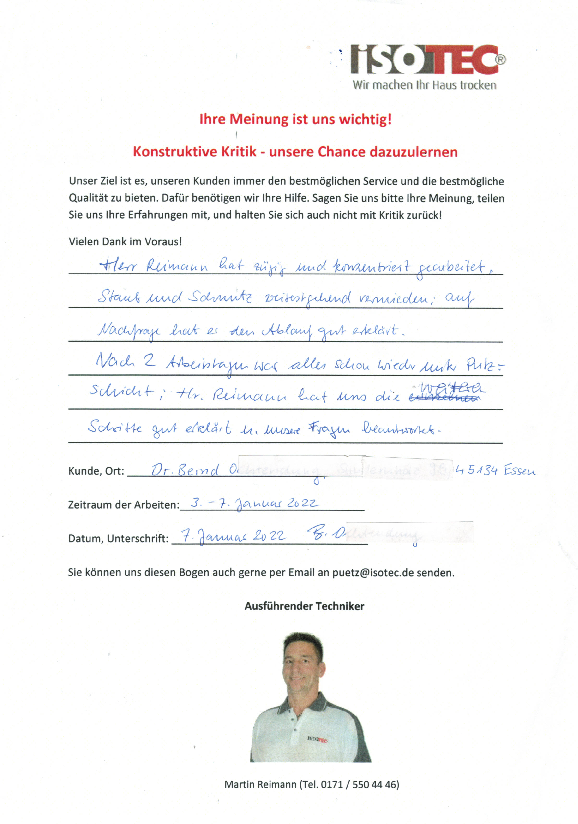 ISOTEC®
Wir machen Ihr Haus trocken
Ihre Meinung ist uns wichtig!
Konstruktive Kritik - unsere Chance dazuzulernen
Unser Ziel ist es, unseren Kunden immer den bestmöglichen Service und die bestmögliche
Qualität zu bieten. Dafür benötigen wir Ihre Hilfe. Sagen Sie uns bitte Ihre Meinung, teilen
Sie uns Ihre Erfahrungen mit, und halten Sie sich auch nicht mit Kritik zurück!
Vielen Dank im Voraus!
Herr Reimann hat zügig und konzentriert gearbeitet,
Staub und Schmutz weitestgehend vermieden; auf
Nachfrage hat er den Ablauf gut erklärt.
Nach 2 Arbeitstagen war alles schon wieder unter Putz-
Schicht; Hr. Reimann hat uns die weiteren
Schritte gut erklärt u. unsere Fragen beantwortet.
Kunde, Ort: Dr. Bernd O 45134 Essen
Zeitraum der Arbeiten: 3. - 7. Januar 2022
Datum, Unterschrift: 7. Januar 2022 B. O
Sie können uns diesen Bogen auch gerne per Email an puetz@isotec.de senden.
Ausführender Techniker
ISOTEC
Martin Reimann (Tel. 0171 / 550 44 46)